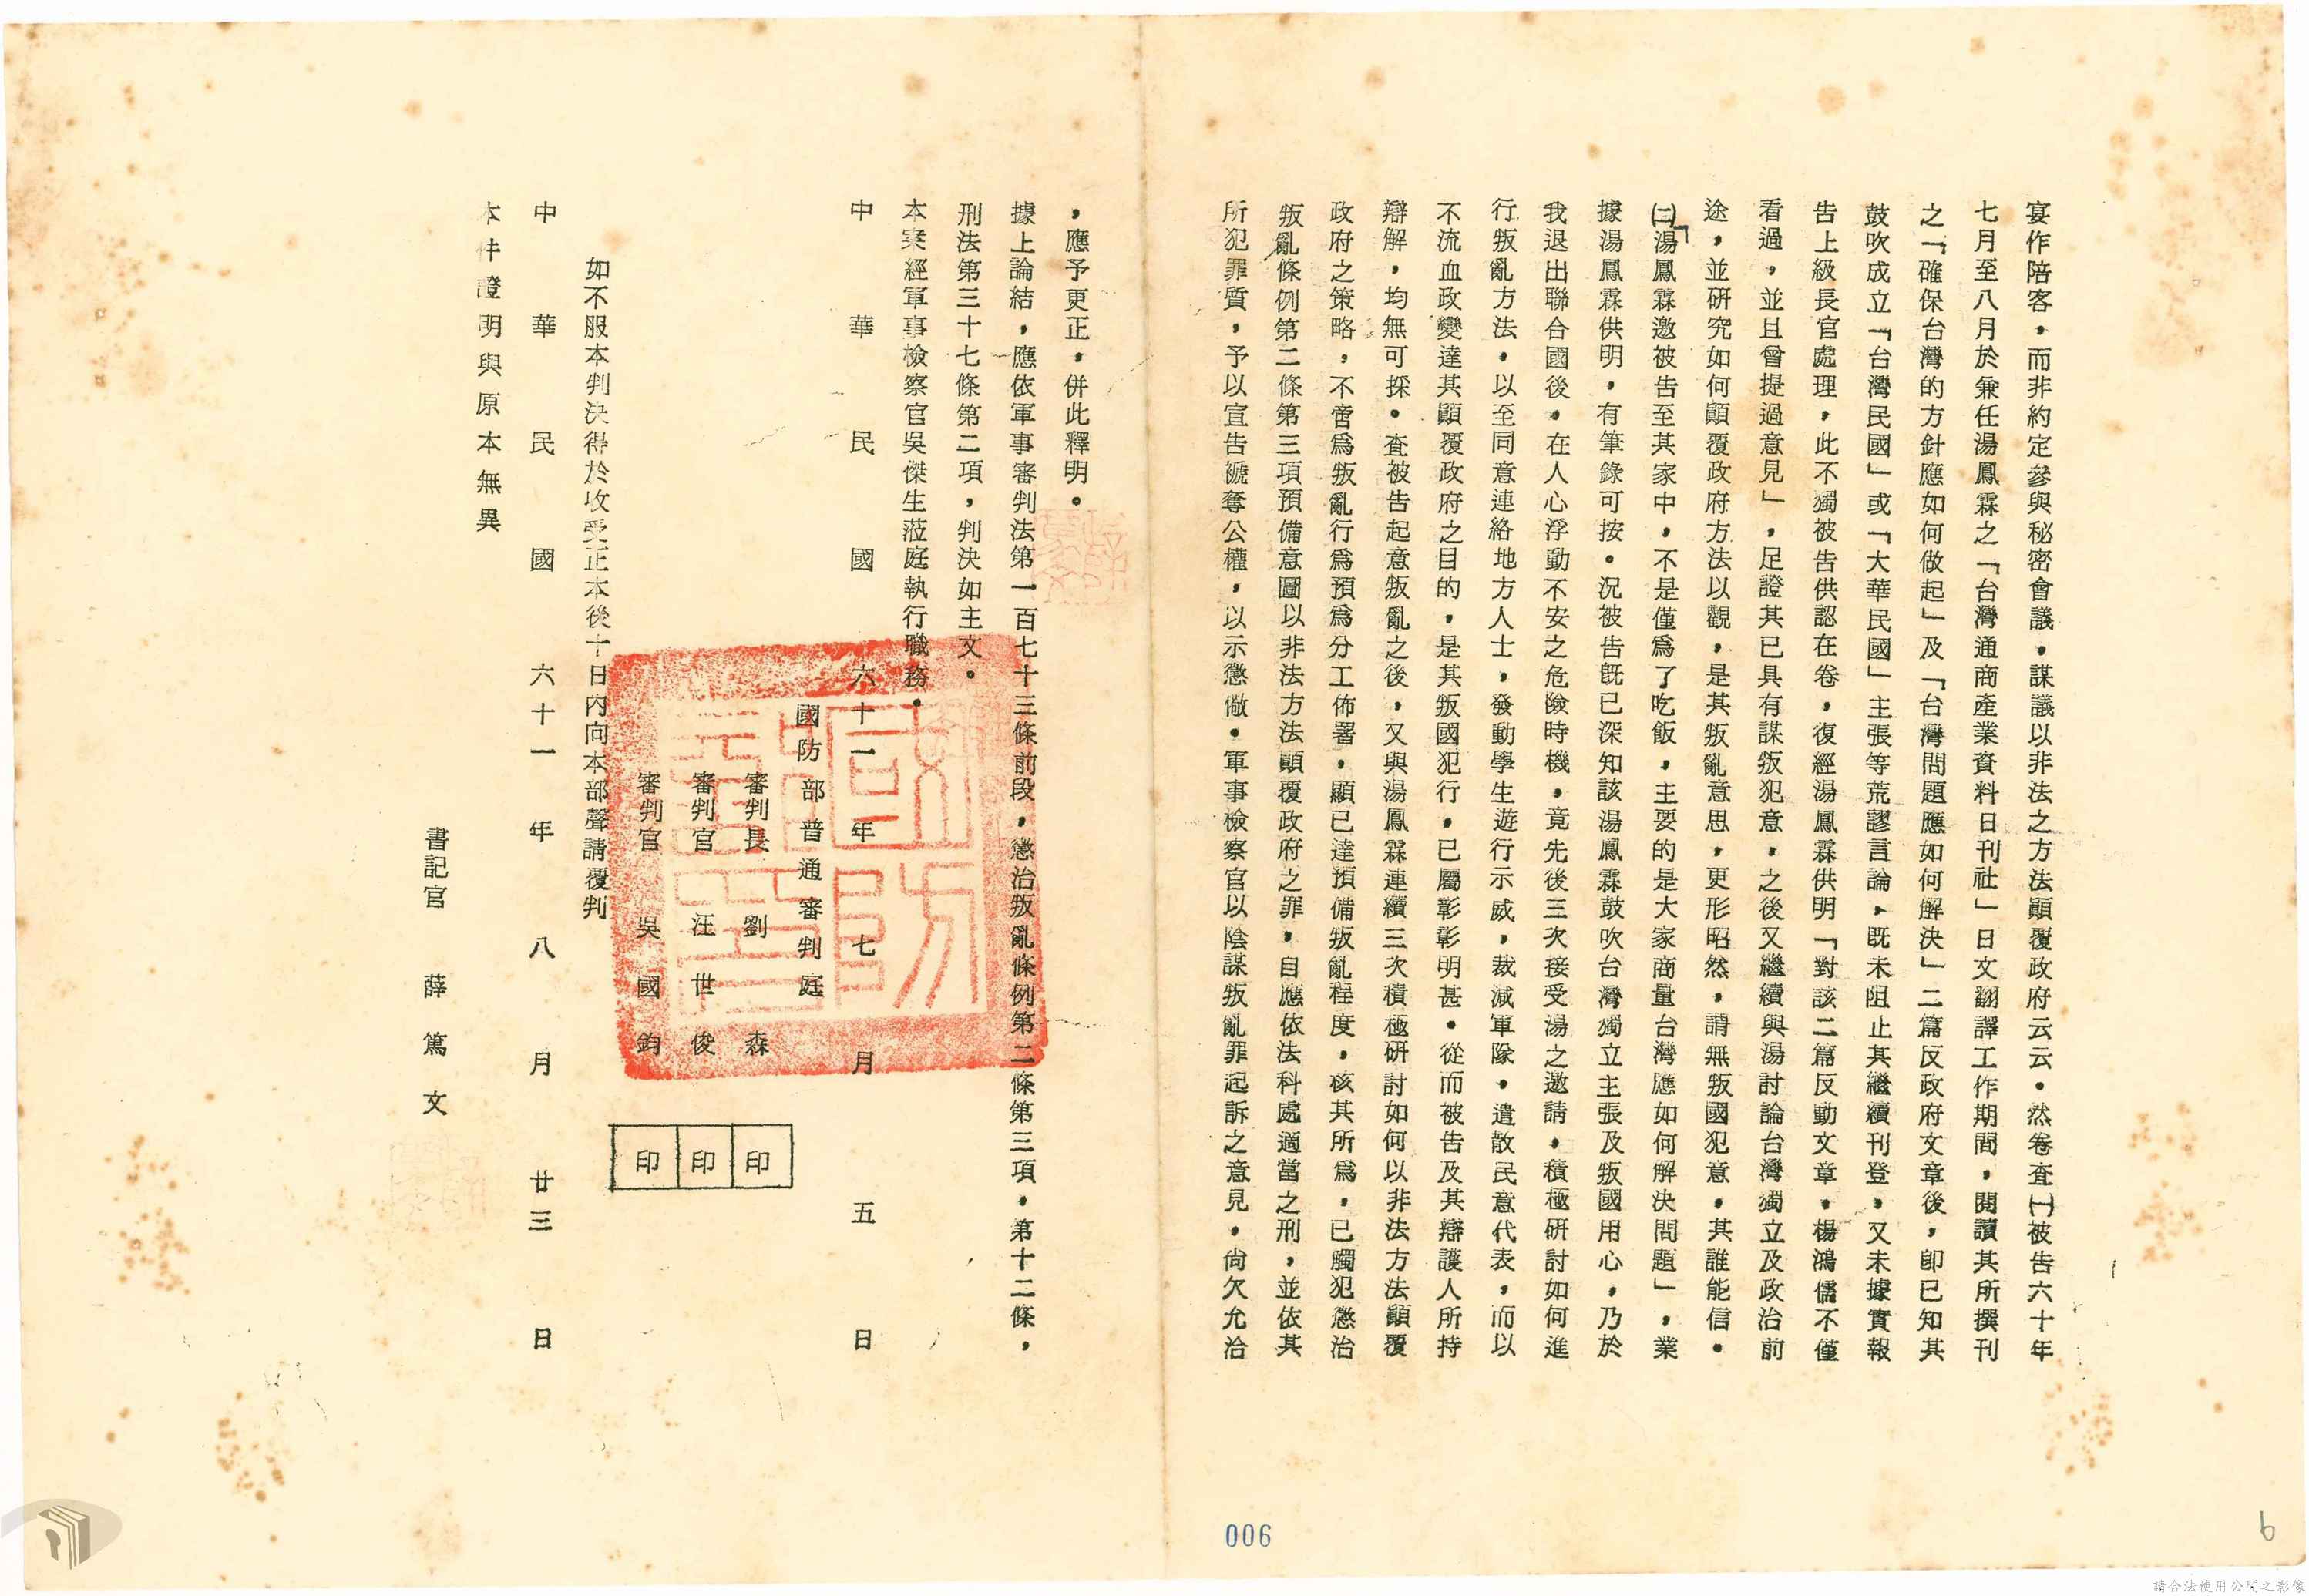 宴作陪客，而非約定參與秘密會議，謀議以非法之方法顛覆政府云云。然卷查㈠被告六十年
七月至八月於兼任湯鳳霖之「台灣通商產業資料日刊社」日文翻譯工作期間，閱讀其所撰刊
之「確保台灣的方針應如何做起」及「台灣問題應如何解決」二篇反政府文章後，即已知其
鼓吹成立「台灣民國」或「大華民國」主張等荒謬言論，既未阻止其繼續刊登，又未據實報
告上級長官處理，此不獨被告供認在卷，復經湯鳳霖供明「對該二篇反動文章，楊鴻儒不僅
看過，並且曾提過意見」，足證其已具有謀叛犯意，之後又繼續與湯討論台灣獨立及政治前
途，並研究如何顛覆政府方法以觀，是其叛亂意思，更形昭然，謂無叛國犯意，其誰能信。
㈡「湯鳳霖邀被告至其家中，不是僅為了吃飯，主要的是大家商量台灣應如何解決問題」，業
據湯鳳霖供明，有筆錄可按。況被告既已深知該湯鳳霖鼓吹台灣獨立主張及叛國用心，乃於
我退出聯合國後，在人心浮動不安之危險時機，竟先後三次接受湯之邀請，積極研討如何進
行叛亂方法，以至同意連絡地方人士，發動學生遊行示威，裁減軍隊，遣散民意代表，而以
不流血政變達其顛覆政府之目的，是其叛國犯行，已屬彰彰明甚。從而被告及其辯護人所持
辯解，均無可採。查被告起意叛亂之後，又與湯鳳霖連續三次積極研討如何以非法方法顛覆
政府之策略，不啻為叛亂行為預為分工佈署，顯已達預備叛亂程度，核其所為，已觸犯懲治
叛亂條例第二條第三項預備意圖以非法方法顛覆政府之罪，自應依法科處適當之刑，並依其
所犯罪質，予以宣告褫奪公權，以示懲儆。軍事檢察官以陰謀叛亂罪起訴之意見，尚欠允洽
，應予更正，併此釋明。
據上論結，應依軍事審判法第一百七十三條前段，懲治叛亂條例第二條第三項，第十二條，
刑法第三十七條第二項，判決如主文。
本案經軍事檢察官吳傑生蒞庭執行職務。
中華民國六十一年七月五日
國防部普通審判庭
審判長 劉森 印
審判官 汪世俊 印
審判官 吳國鈞 印
如不服本判決得於收受正本後十日內向本部聲請覆判
中華民國六十一年八月廿三日
本件證明與原本無異
書記官 薛篤文
006
6
請合法使用公開之影像